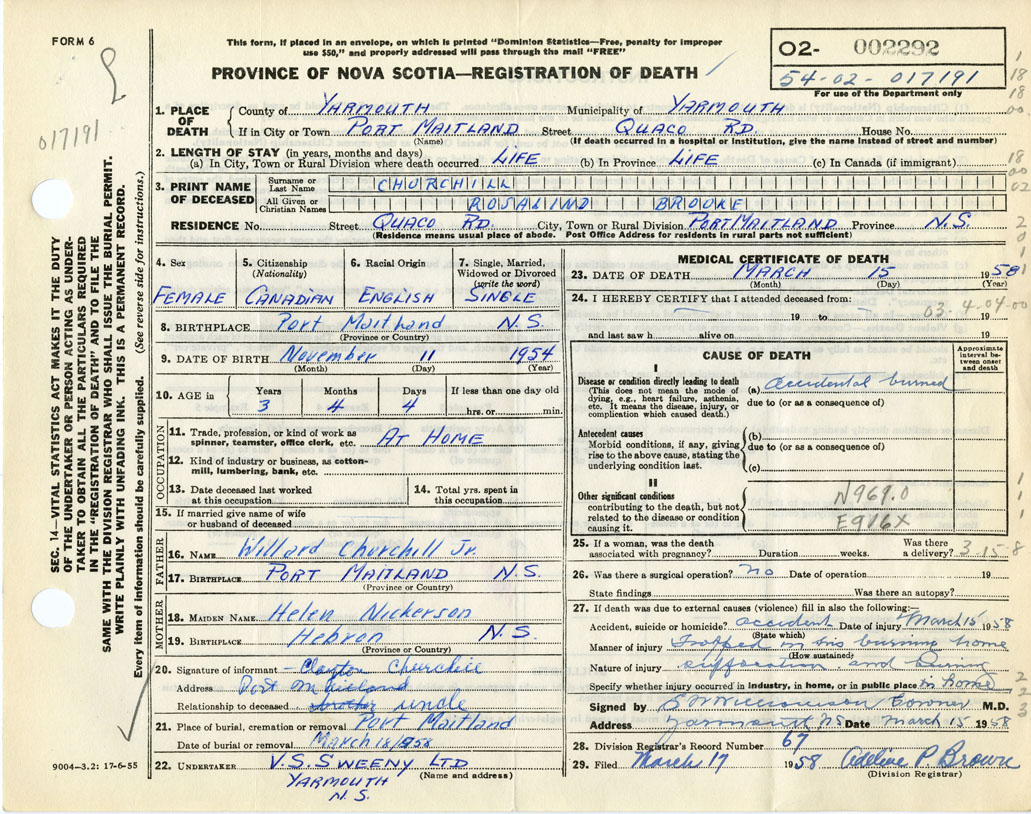 FORM 6
This form, if placed in an envelope, on which is printed "Dominion Statistics—Free, penalty for improper
use $50," and properly addressed will pass through the mail "FREE"
PROVINCE OF NOVA SCOTIA—REGISTRATION OF DEATH
02- 002292
54-02-017191
For use of the Department only
017191
1. PLACE OF DEATH
County of YARMOUTH Municipality of YARMOUTH
If in City or Town PORT MAITLAND Street QUACO RD. House No.
(Name) (If death occurred in a hospital or institution, give the name instead of street and number)
2. LENGTH OF STAY (in years, months and days)
(a) In City, Town or Rural Division where death occurred LIFE (b) In Province LIFE (c) In Canada (if immigrant)
3. PRINT NAME OF DECEASED
Surname or Last Name CHURCHILL
All Given or Christian Names ROSALIND BROOKE
RESIDENCE No. Street QUACO RD. City, Town or Rural Division PORT MAITLAND Province N.S.
(Residence means usual place of abode. Post Office Address for residents in rural parts not sufficient)
4. Sex
FEMALE
5. Citizenship
(Nationality)
CANADIAN
6. Racial Origin
ENGLISH
7. Single, Married,
Widowed or Divorced
(write the word)
SINGLE
8. BIRTHPLACE Port Maitland N.S.
(Province or Country)
9. DATE OF BIRTH November 11 1954
(Month) (Day) (Year)
10. AGE in
Years Months Days If less than one day old
3 4 4 hrs. or min.
OCCUPATION
11. Trade, profession, or kind of work as
spinner, teamster, office clerk, etc. AT HOME
12. Kind of industry or business, as cotton-
mill, lumbering, bank, etc.
13. Date deceased last worked
at this occupation
14. Total yrs. spent in
this occupation
15. If married give name of wife
or husband of deceased
FATHER
16. NAME Willard Churchill Jr.
17. BIRTHPLACE PORT MAITLAND N.S.
(Province or Country)
MOTHER
18. MAIDEN NAME Helen Nickerson
19. BIRTHPLACE Hebron N.S.
(Province or Country)
20. Signature of informant — Clayton Churchill
Address Port Maitland
Relationship to deceased brother uncle
21. Place of burial, cremation or removal Port Maitland
Date of burial or removal March 18/1958
22. UNDERTAKER V.S. SWEENY LTD
(Name and address)
YARMOUTH
N.S.
MEDICAL CERTIFICATE OF DEATH
23. DATE OF DEATH MARCH 15 1958
(Month) (Day) (Year)
24. I HEREBY CERTIFY that I attended deceased from:
19 to 19
03.4.04.00
and last saw h alive on 19
CAUSE OF DEATH
Approximate
interval be-
tween onset
and death
I
Disease or condition directly leading to death
(This does not mean the mode of
dying, e.g., heart failure, asthenia,
etc. It means the disease, injury, or
complication which caused death.)
(a) accidental burned
due to (or as a consequence of)
Antecedent causes
Morbid conditions, if any, giving
rise to the above cause, stating the
underlying condition last.
(b)
due to (or as a consequence of)
(c)
II
Other significant conditions
contributing to the death, but not
related to the disease or condition
causing it.
N969.0
E916X
25. If a woman, was the death
associated with pregnancy? Duration weeks.
Was there
a delivery? 3-15-8
26. Was there a surgical operation? no Date of operation 19
State findings Was there an autopsy?
27. If death was due to external causes (violence) fill in also the following:—
Accident, suicide or homicide? accident Date of injury March 15 1958
(State which)
Manner of injury Trapped in his burning home
(How sustained)
Nature of injury suffocation and Burning
Specify whether injury occurred in industry, in home, or in public place in home
Signed by Coroner M.D.
Address Yarmouth NS Date March 15 1958
28. Division Registrar's Record Number 67
29. Filed March 17 1958 Adeline P. Brown
(Division Registrar)
SEC. 14—VITAL STATISTICS ACT MAKES IT THE DUTY
OF THE UNDERTAKER OR PERSON ACTING AS UNDER-
TAKER TO OBTAIN ALL THE PARTICULARS REQUIRED
IN THE "REGISTRATION OF DEATH" AND TO FILE THE
SAME WITH THE DIVISION REGISTRAR WHO SHALL ISSUE THE BURIAL PERMIT.
WRITE PLAINLY WITH UNFADING INK. THIS IS A PERMANENT RECORD.
Every item of information should be carefully supplied. (See reverse side for instructions.)
9004—3.2: 17-6-55
1
18
18
00
18
00
02
2
0
1
1
1
1
2
2
3